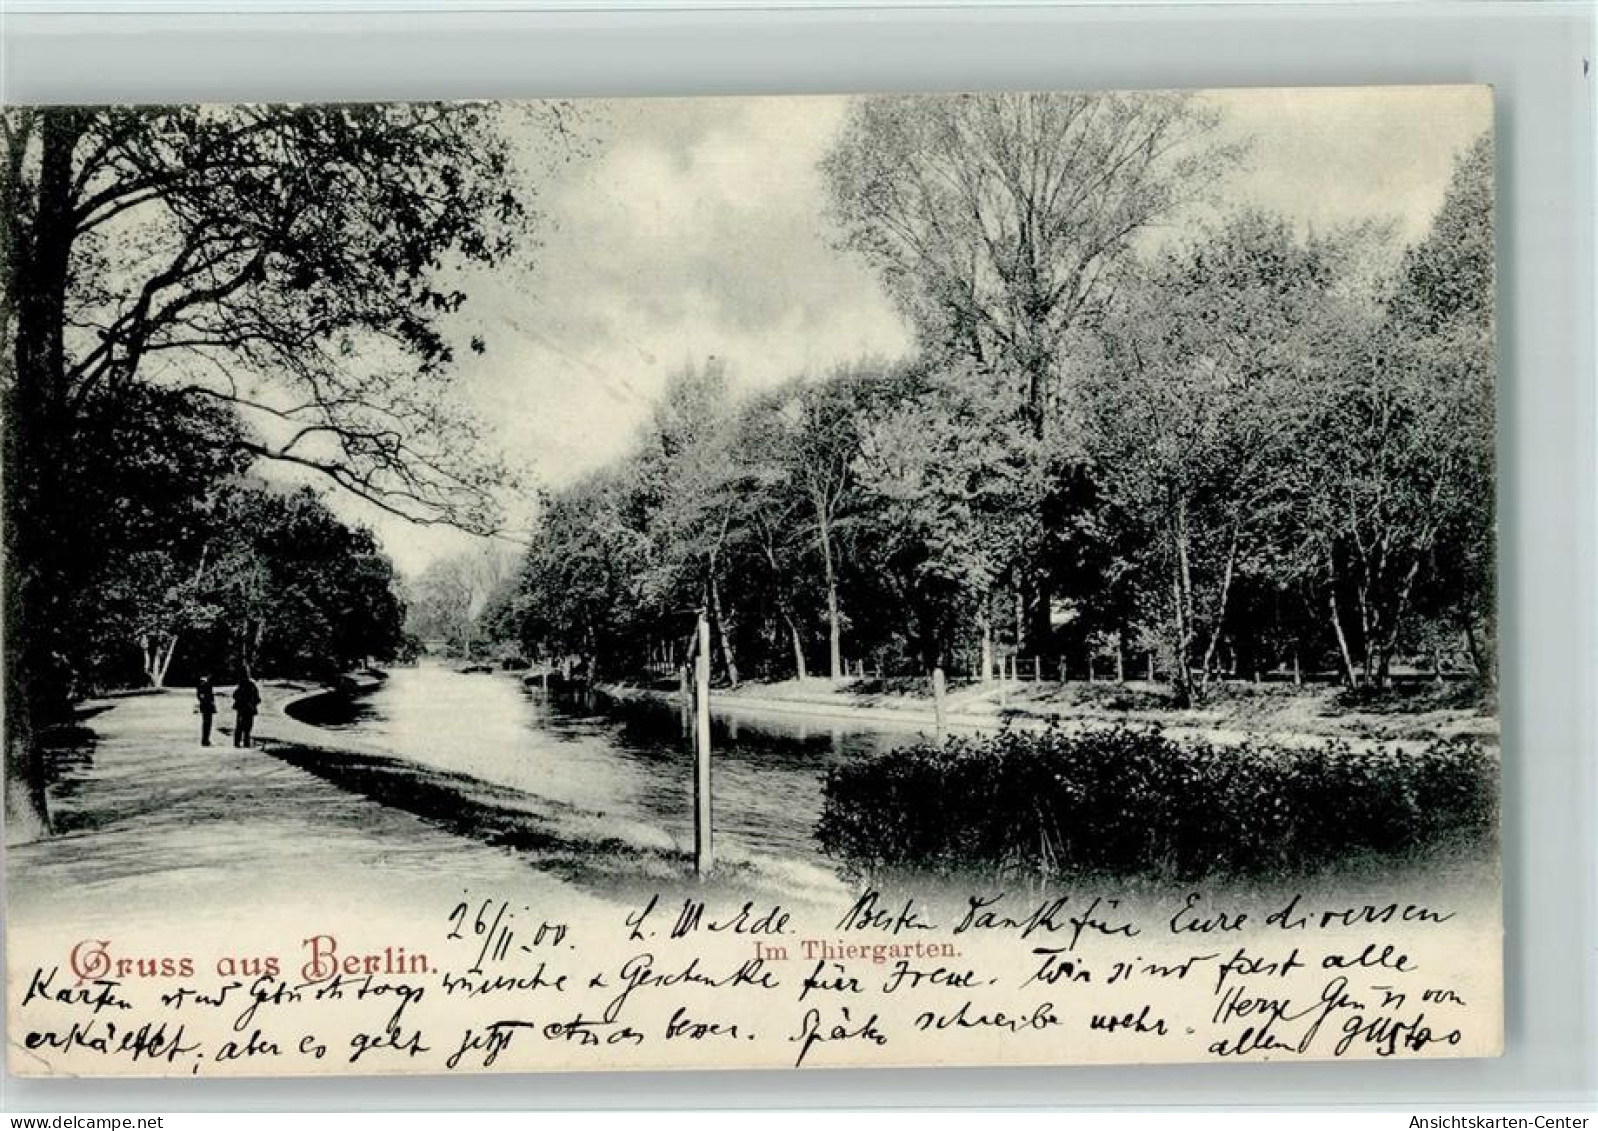 26/II.00. L. M. Ede. Besten Dank für Eure diversen
Im Thiergarten.
Gruss aus Berlin.
Karten und Geburtstagswünsche & Geschenke für Irene. Wir sind fast alle
erkältet, aber es geht jetzt etwas besser. Später schreibe mehr. Herzl Gruss von
allen Gustav